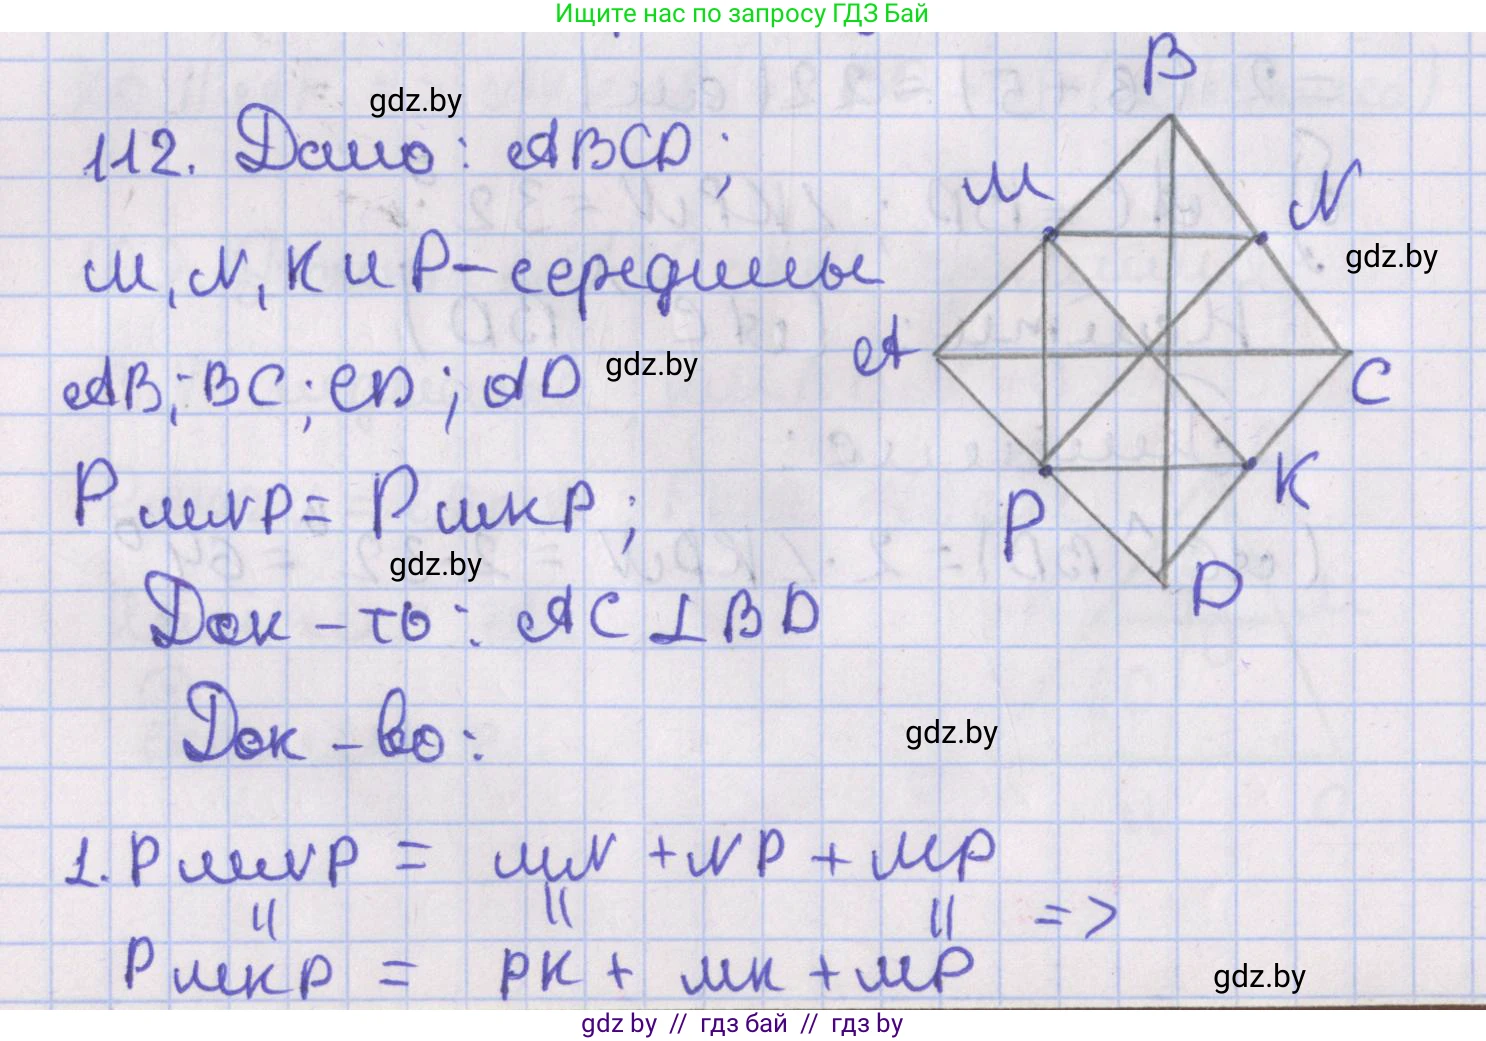 Ищите нас по запросу ГДЗ Бай
B
gdz.by
112. Дано: ABCD;
M
N
gdz.by
M, N, K и P – середины
A
C
AB; BC; CD; AD
gdz.by
K
P MNP = P MKP;
P
gdz.by
D
Док – ть: AC ⊥ BD
Док – во:
gdz.by
1. P MNP = MN + NP + MP
= = = =>
P MKP = PK + MK + MP
gdz.by
gdz by // гдз бай // гдз by